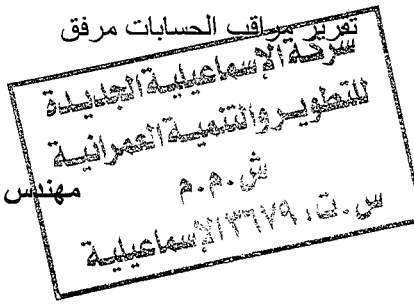 تقرير مراقب الحسابات مرفق
شركة الإسماعيلية الجديدة
للتطوير والتنمية العمرانية
ش.م.م
مهندس
س.ت. ٣٦٧٩ الإسماعيلية